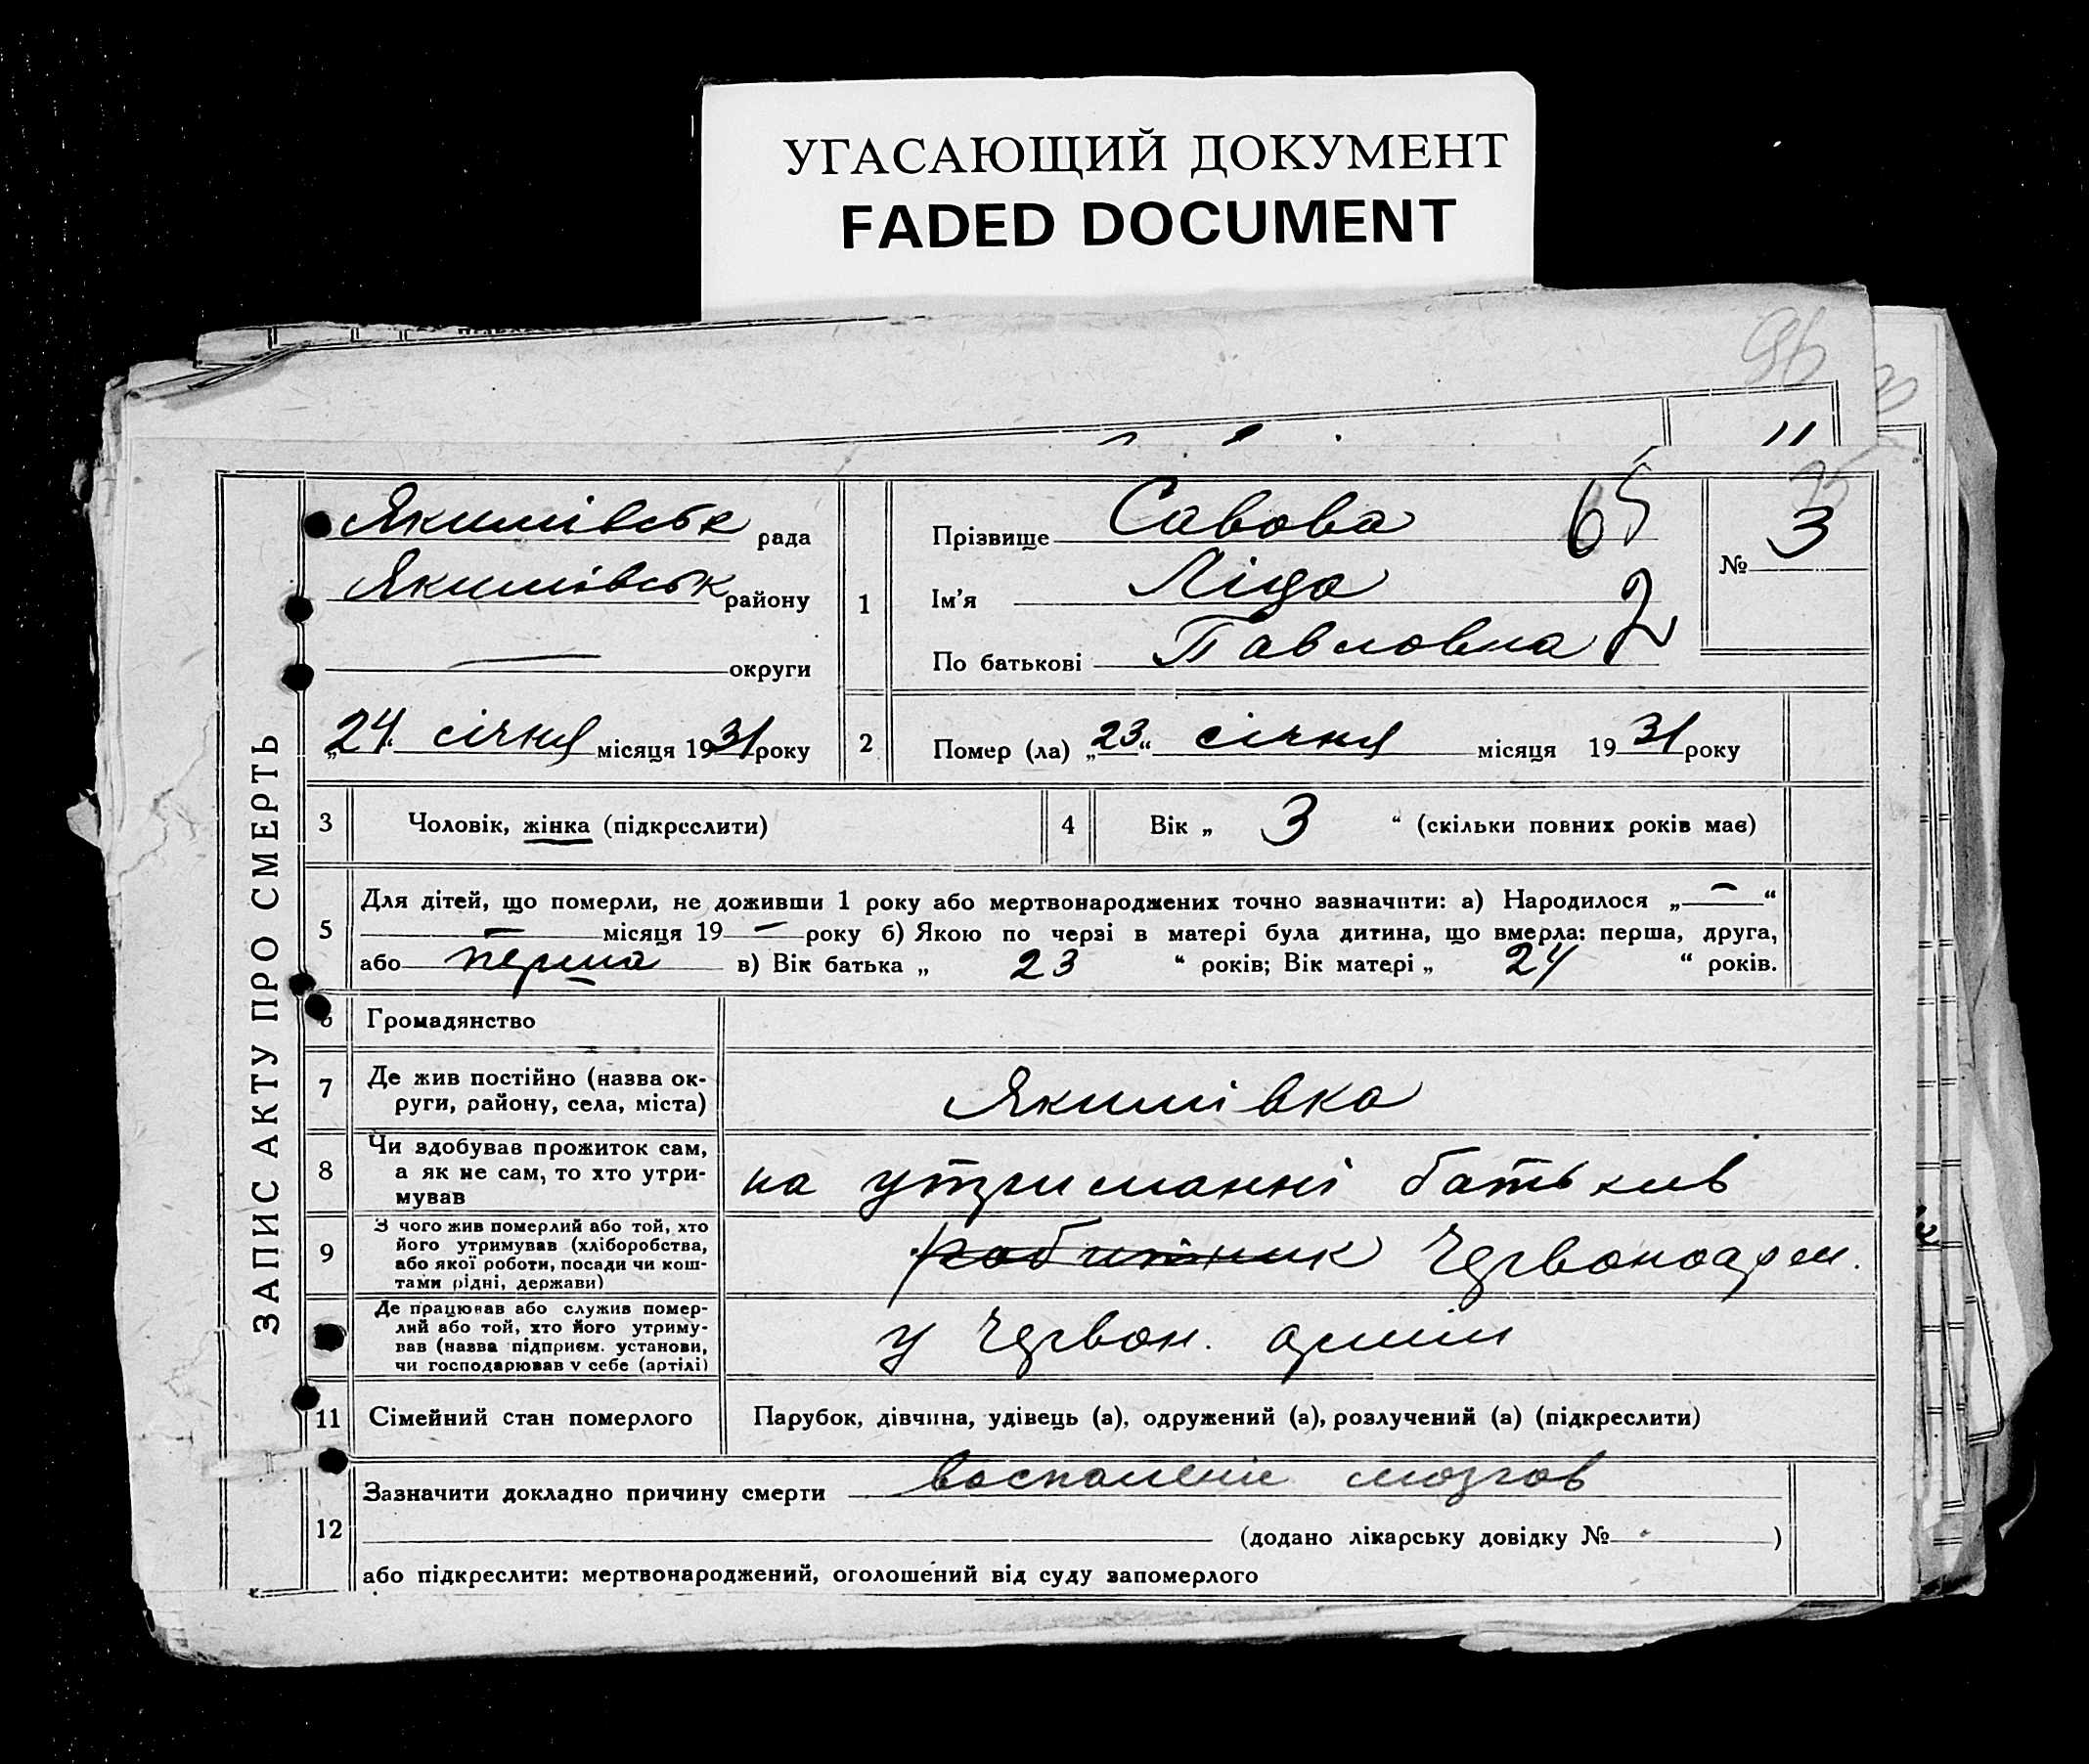 УГАСАЮЩИЙ ДОКУМЕНТ
FADED DOCUMENT
96
11
95
ЗАПИС АКТУ ПРО СМЕРТЬ
Якимівськ рада
Якимівськ району
— округи
„24“ січня місяця 1931 року
1
Прізвище Савова 65
Ім'я Ліда 2
По батькові Павловна
№ 3
2 Помер (ла) „23“ січня місяця 1931 року
3 Чоловік, жінка (підкреслити)
4 Вік „ 3 “ (скільки повних років має)
5 Для дітей, що померли, не доживши 1 року або мертвонароджених точно зазначити: а) Народилося „—“
— місяця 19 — року б) Якою по черзі в матері була дитина, що вмерла: перша, друга,
або перша в) Вік батька „ 23 “ років; Вік матері „ 24 “ років.
6 Громадянство
7 Де жив постійно (назва ок-
руги, району, села, міста)
Якимівка
8 Чи здобував прожиток сам,
а як не сам, то хто утри-
мував
на утриманні батьків
9 З чого жив померлий або той, хто
його утримував (хліборобства,
або якої роботи, посади чи кош-
тами рідні, держави)
робитник Червоноарм.
Де працював або служив помер-
лий або той, хто його утриму-
вав (назва підприєм. установи,
чи господарював у себе (артілі)
у Червон. армии
11 Сімейний стан померлого
Парубок, дівчина, удівець (а), одружений (а), розлучений (а) (підкреслити)
12 Зазначити докладно причину смерти воспаление мозгов
(додано лікарську довідку № )
або підкреслити: мертвонароджений, оголошений від суду запомерлого